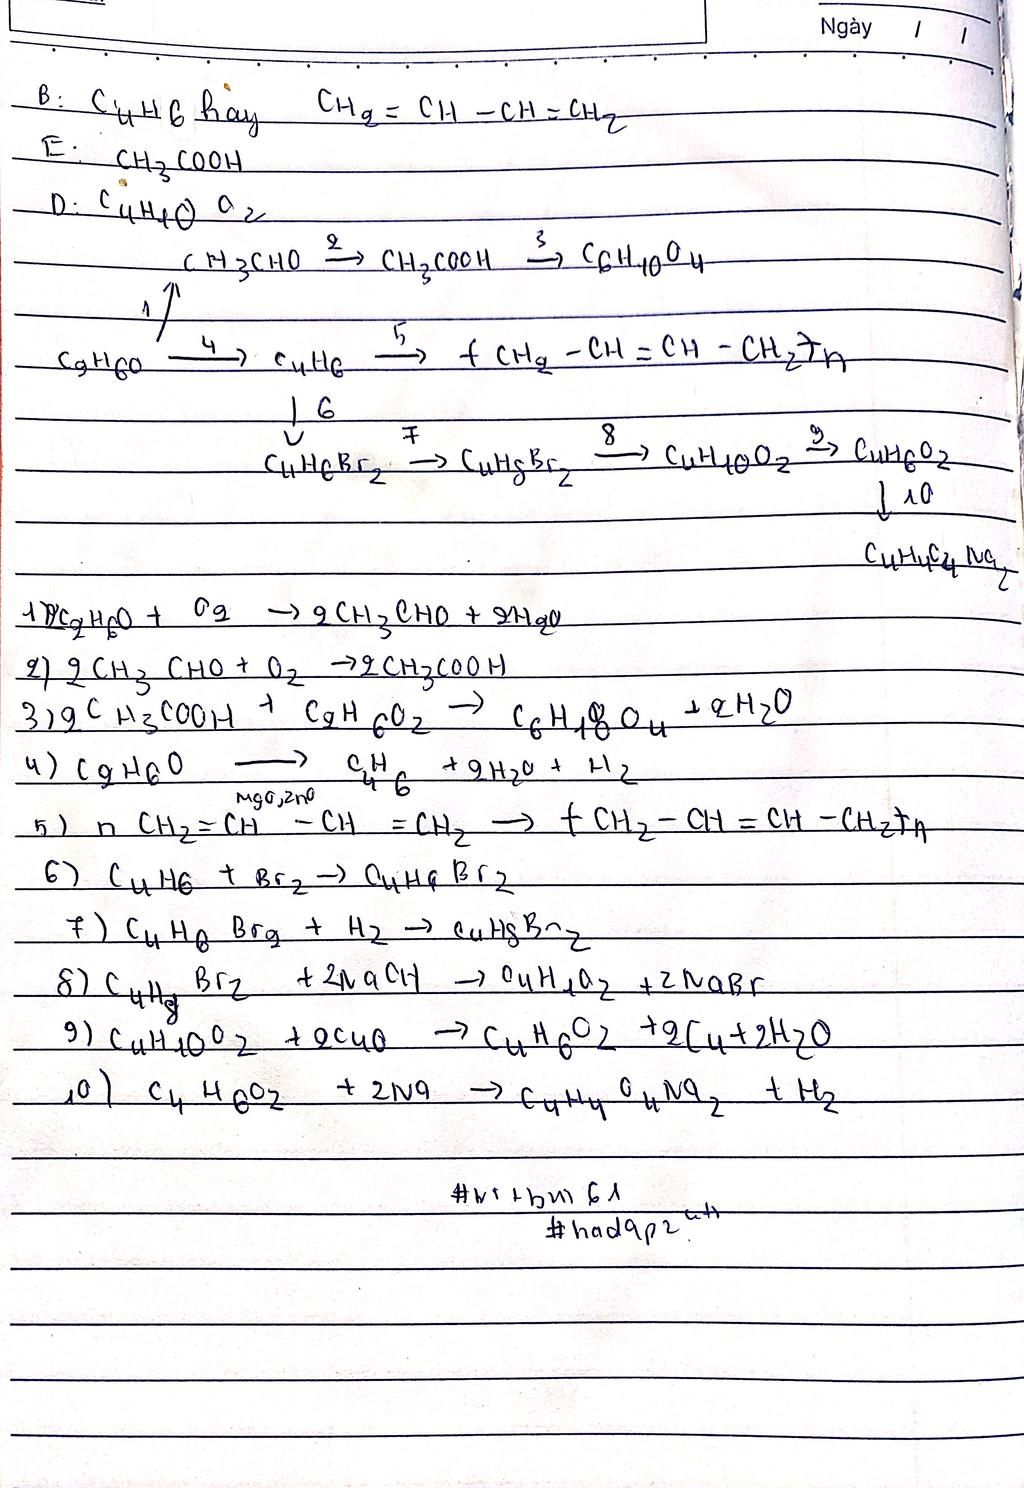 Ngày / /
B: C4H6 hay CH2 = CH - CH = CH2
E: CH3COOH
D: C4H10O2
CH3CHO 2→ CH3COOH 3→ C6H10O4
1
C2H6O 4→ C4H6 5→ (CH2 - CH = CH - CH2)n
↓ 6
C4H6Br2 7→ C4H8Br2 8→ C4H10O2 9→ C4H6O2
↓ 10
C4H4O4Na2
1) 2C2H6O + O2 → 2CH3CHO + 2H2O
2) 2CH3CHO + O2 → 2CH3COOH
3) 2CH3COOH + C2H6O2 → C6H10O4 + 2H2O
4) C2H6O → C4H6 + 2H2O + H2
MgO, ZnO
5) n CH2 = CH - CH = CH2 → (CH2 - CH = CH - CH2)n
6) C4H6 + Br2 → C4H6Br2
7) C4H6Br2 + H2 → C4H8Br2
8) C4H8Br2 + 2NaOH → C4H10O2 + 2NaBr
9) C4H10O2 + 2CuO → C4H6O2 + 2Cu + 2H2O
10) C4H6O2 + 2Na → C4H4O4Na2 + H2